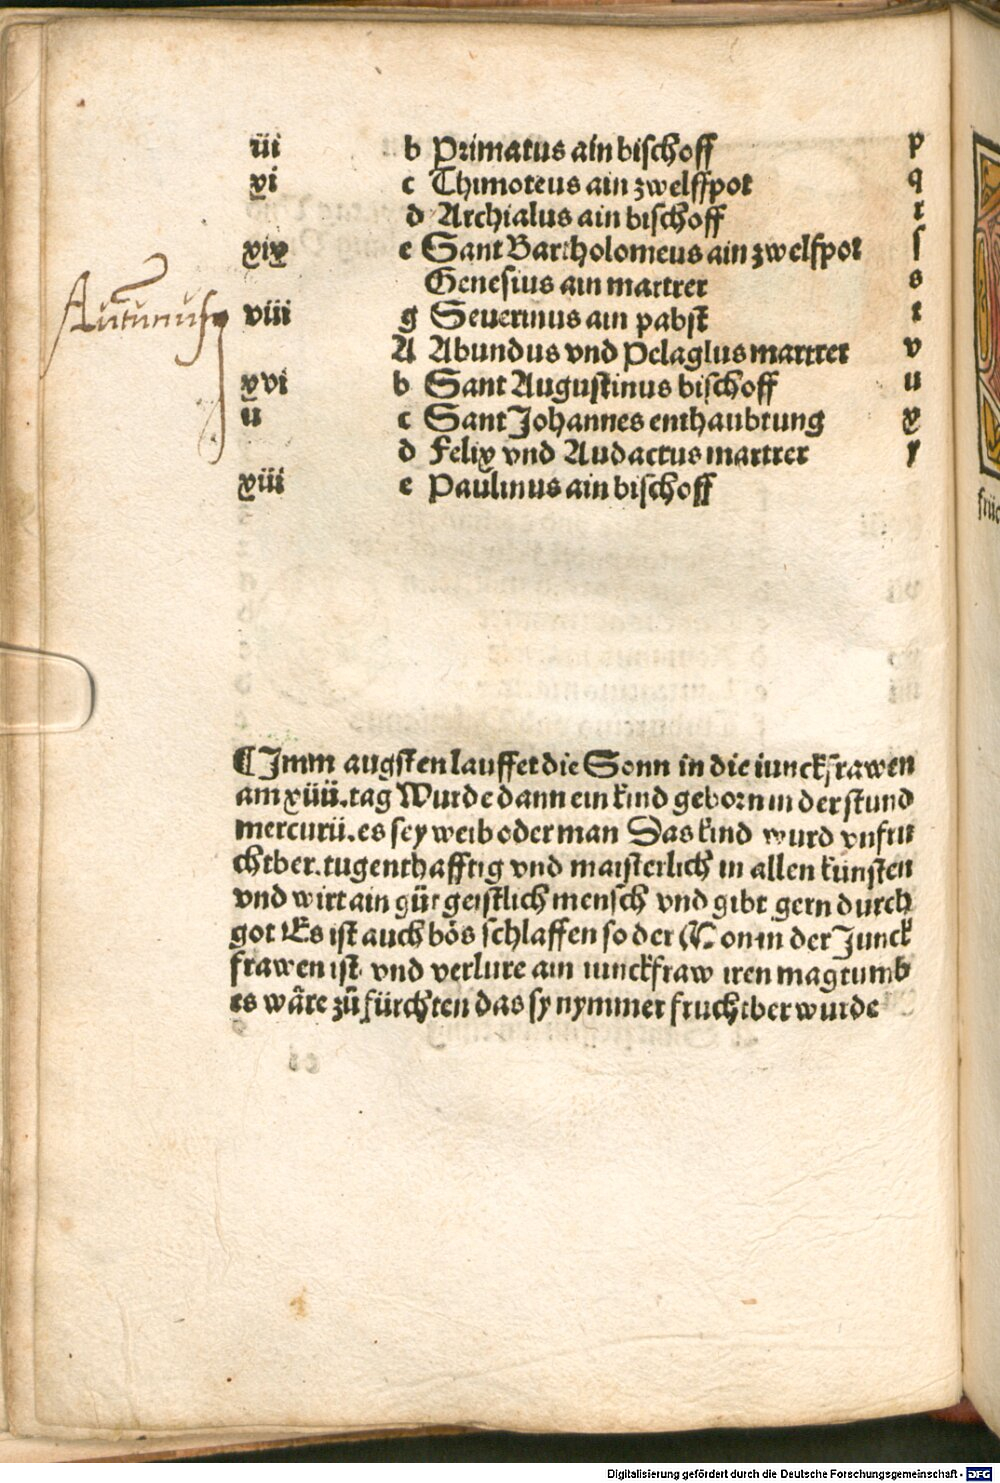 iii b Primatus ain bischoff p
xi c Thimoteus ain zwelffpot q
d Archialus ain bischoff r
xix e Sant Bartholomeus ain zwelfpot ſ
Genesius ain martrer s
Autumnus viii g Seuerinus ain pabst t
A Abundus vnd Pelagius martrer v
xvi b Sant Augustinus bischoff u
ii c Sant Johannes enthaubtung x
d Felix vnd Audactus martrer y
xiii e Paulinus ain bischoff
¶ Imm augsten lauffet die Sonn in die iunckfrawen
am xiiii. tag Wurde dann ein kind geborn in der stund
mercurii. es sey weib oder man Das kind wurd vnfru
chtber. tugenthafftig vnd maisterlich in allen künsten
vnd wirt ain güt geistlich mensch vnd gibt gern durch
got Es ist auch bös schlaffen so der Mon in der Junck
frawen ist. vnd verlure ain iunckfraw iren magtumb
es wäre zů fürchten das sy nymmer fruchtber wurde
frü
Digitalisierung gefördert durch die Deutsche Forschungsgemeinschaft - DFG